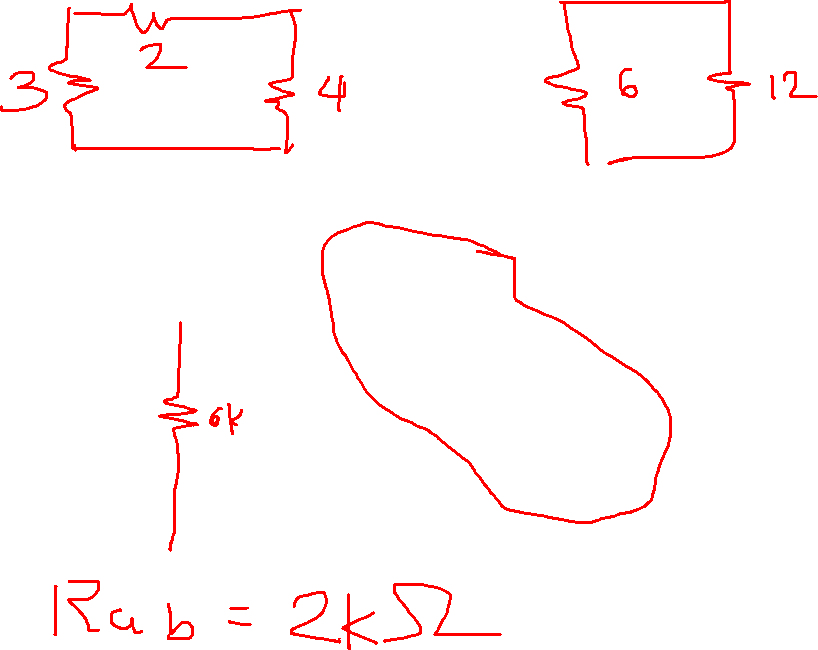 2
3 4 6 12
6k
Rab = 2kΩ